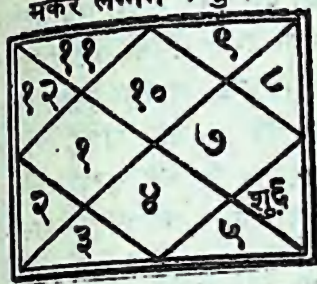 मकर लग्न
११ ९
१२ १० ८
१ ७
२ ४ शु६
३ ५